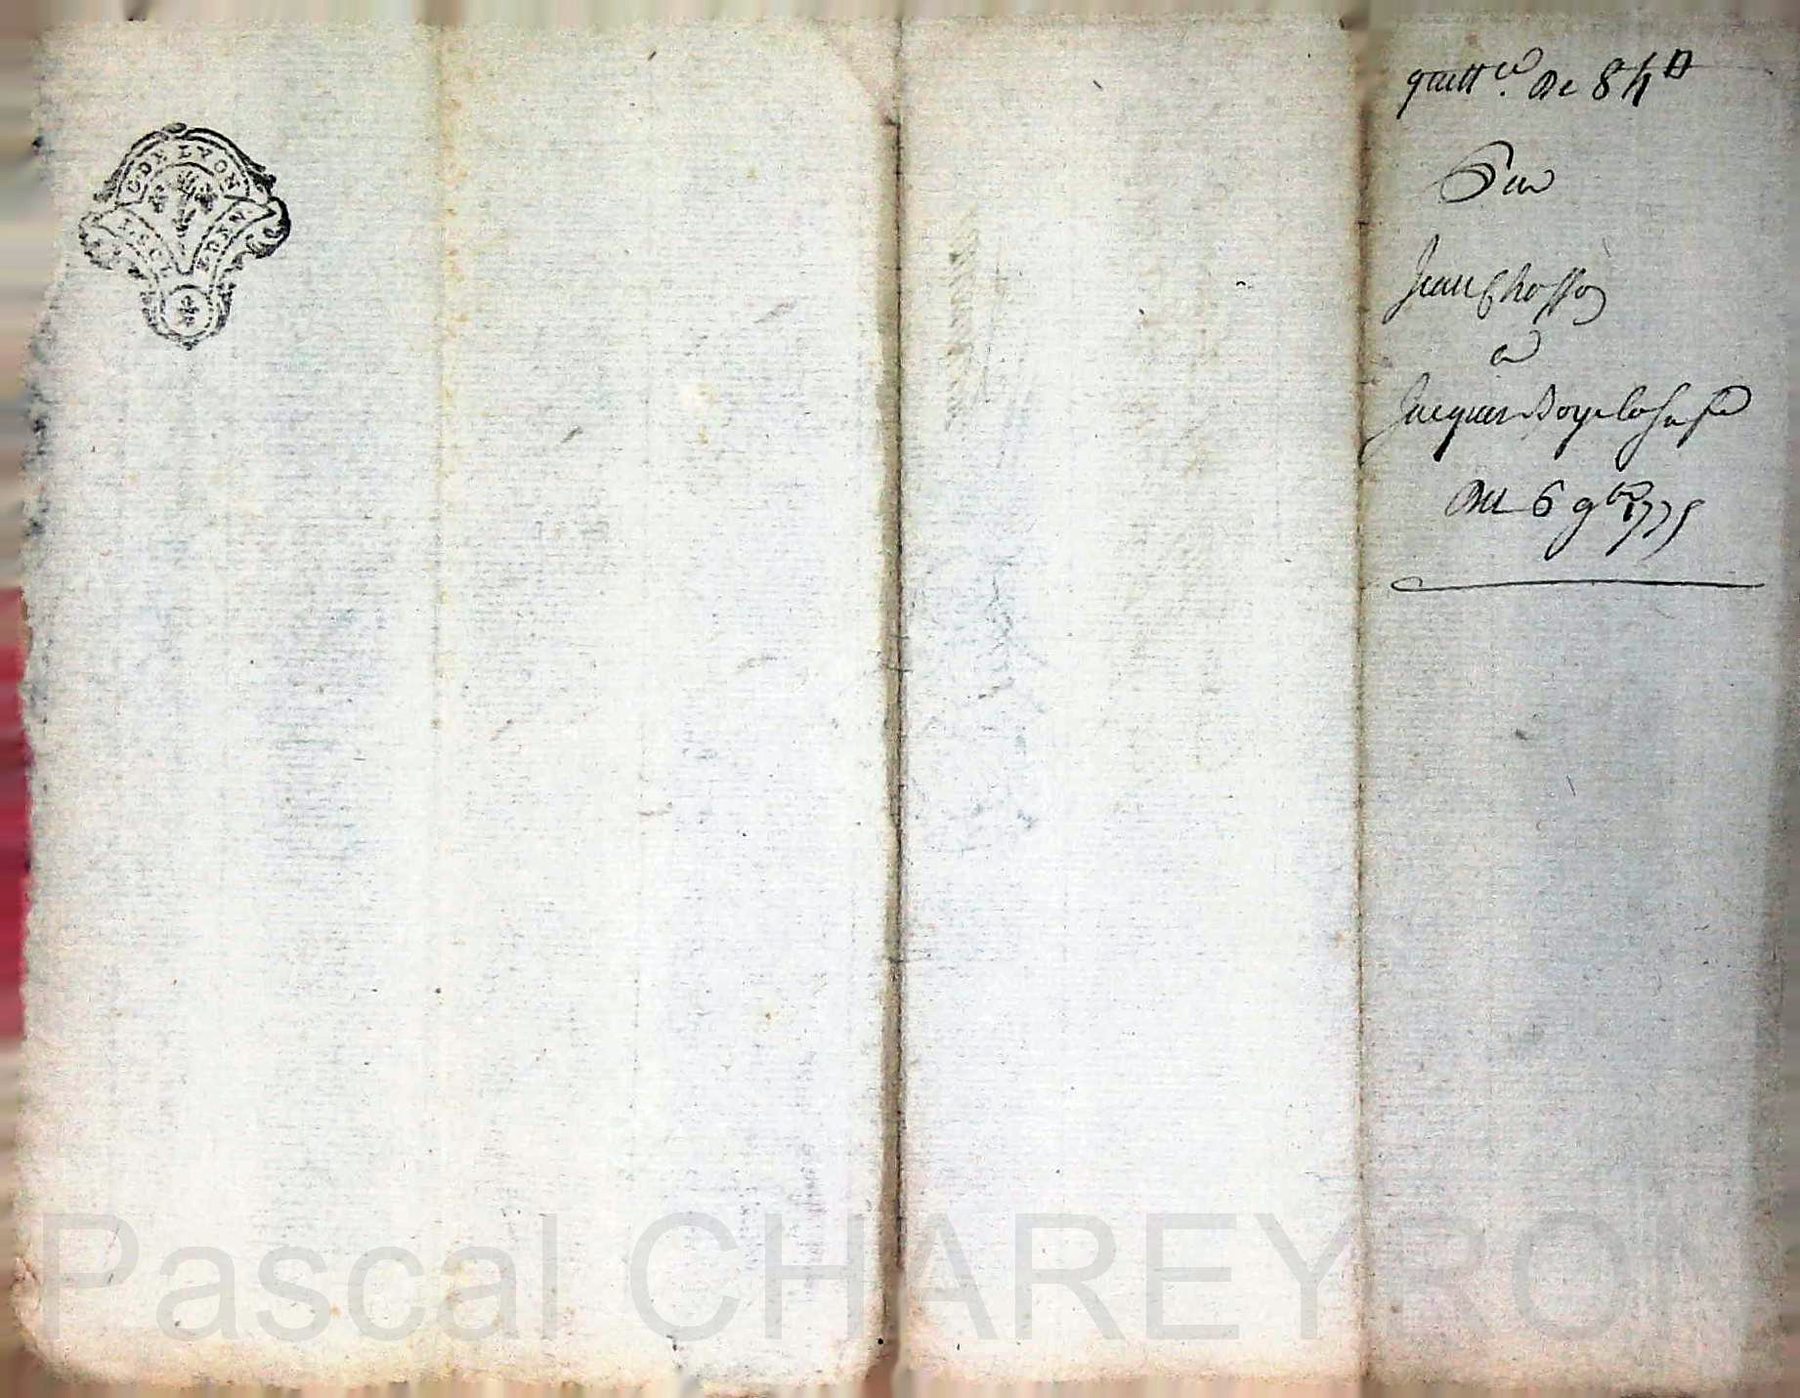 G. DE LYON
quitt.ce De 84 ₶
Par
Jean Chosson
a
Jacques
Du 6 9bre 1775
Pascal CHAREYRON